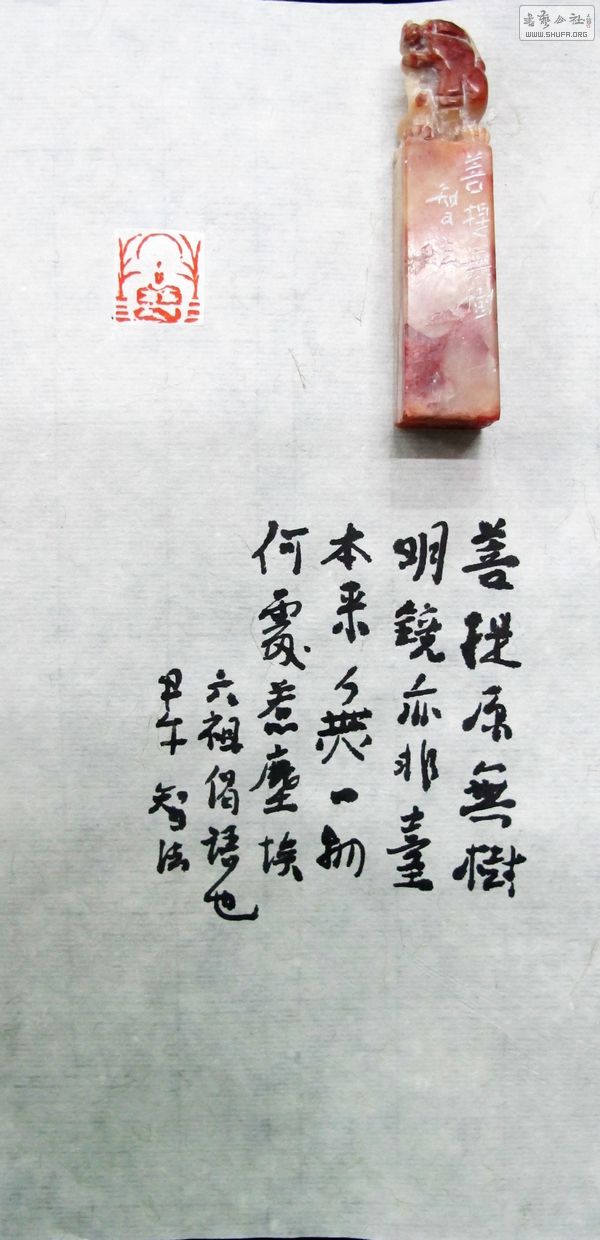 菩提原無樹
明鏡亦非臺
本来無一物
何處惹塵埃
六祖偈語也
甲午 智法
菩提無樹
智法
書藝公社
WWW.SHUFA.ORG